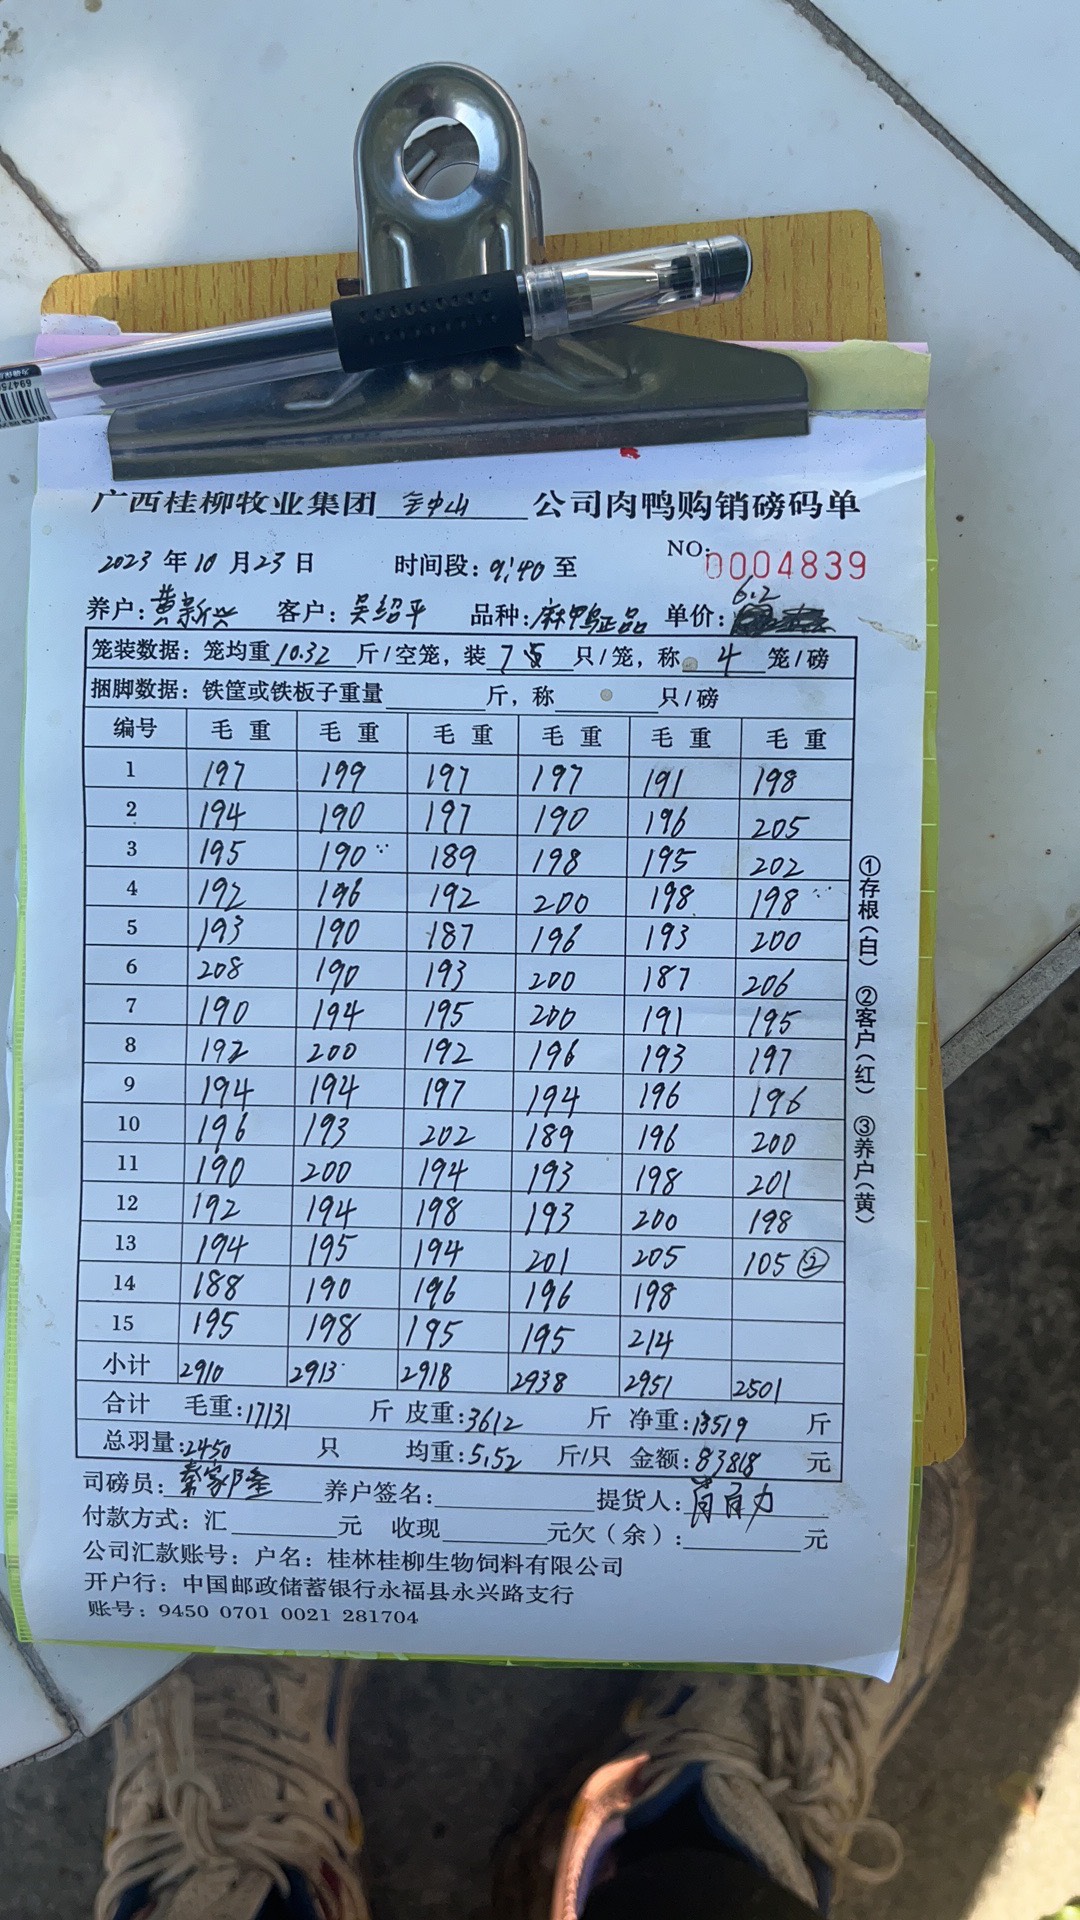 广西桂柳牧业集团 金中山 公司肉鸭购销磅码单
2023 年 10 月 23 日 时间段: 9:40 至 NO: 0004839
养户: 黄新兴 客户: 吴绍平 品种: 麻鸭正品 单价: 6.2
笼装数据: 笼均重 10.32 斤/空笼, 装 7 只/笼, 称 4 笼/磅
捆脚数据: 铁筐或铁板子重量 斤, 称 只/磅
编号 毛重 毛重 毛重 毛重 毛重 毛重
1 197 199 197 197 191 198
2 194 190 197 190 196 205
3 195 190 189 198 195 202
4 192 196 192 200 198 198
5 193 190 187 196 193 200
6 208 190 193 200 187 206
7 190 194 195 200 191 195
8 192 200 192 196 193 197
9 194 194 197 194 196 196
10 196 193 202 189 196 200
11 190 200 194 193 198 201
12 192 194 198 193 200 198
13 194 195 194 201 205 105 ②
14 188 190 196 196 198
15 195 198 195 195 214
小计 2910 2913 2918 2938 2951 2501
合计 毛重: 17131 斤 皮重: 3612 斤 净重: 13519 斤
总羽量: 2450 只 均重: 5.52 斤/只 金额: 83818 元
司磅员: 秦家隆 养户签名: 提货人:
付款方式: 汇 元 收现 元欠(余): 元
公司汇款账号: 户名: 桂林桂柳生物饲料有限公司
开户行: 中国邮政储蓄银行永福县永兴路支行
账号: 9450 0701 0021 281704
①存根(白) ②客户(红) ③养户(黄)